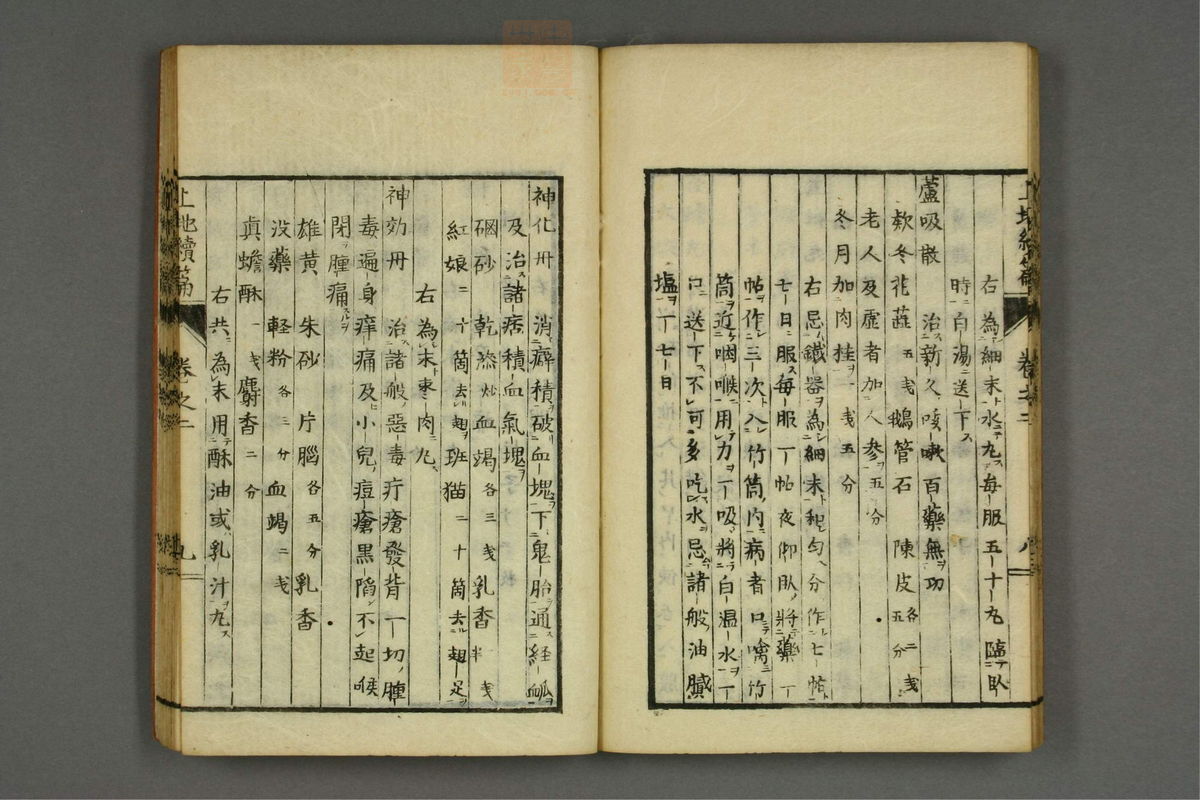 右為細末水丸每服五十丸臨卧
時白湯送下
蘆吸散 治新久咳嗽百藥無功
欵冬花蕋五戔鵝管石 陳皮各二戔五分
老人及虛者加人參五分
冬月加肉桂一戔五分
右忌鐵器為細末和勻分作七帖
七日服每服一帖夜仰臥將藥一
帖作三次入竹筒內病者口噙竹
筒近咽喉用力一吸將白温水一
口送下不可多吃水忌諸般油膩
塩一七日
卷之二
八
神化丹 消癖積破血塊下鬼胎通経脉
及治諸痞積血氣塊
硇砂 乾漆炒血竭各三戔乳香一戔半
紅娘二十箇去翅班猫二十箇去翅足
右為末棗肉丸
神効丹 治諸般惡毒疔瘡發背一切腫
毒遍身痒痛及小兒痘瘡黑陷不起喉
閉腫痛
雄黄 朱砂 片腦各五分乳香
没藥 軽粉各三分血竭二戔
眞蟾酥一戔麝香二分
右共為末用酥油或乳汁丸
上池續篇
卷之二
九